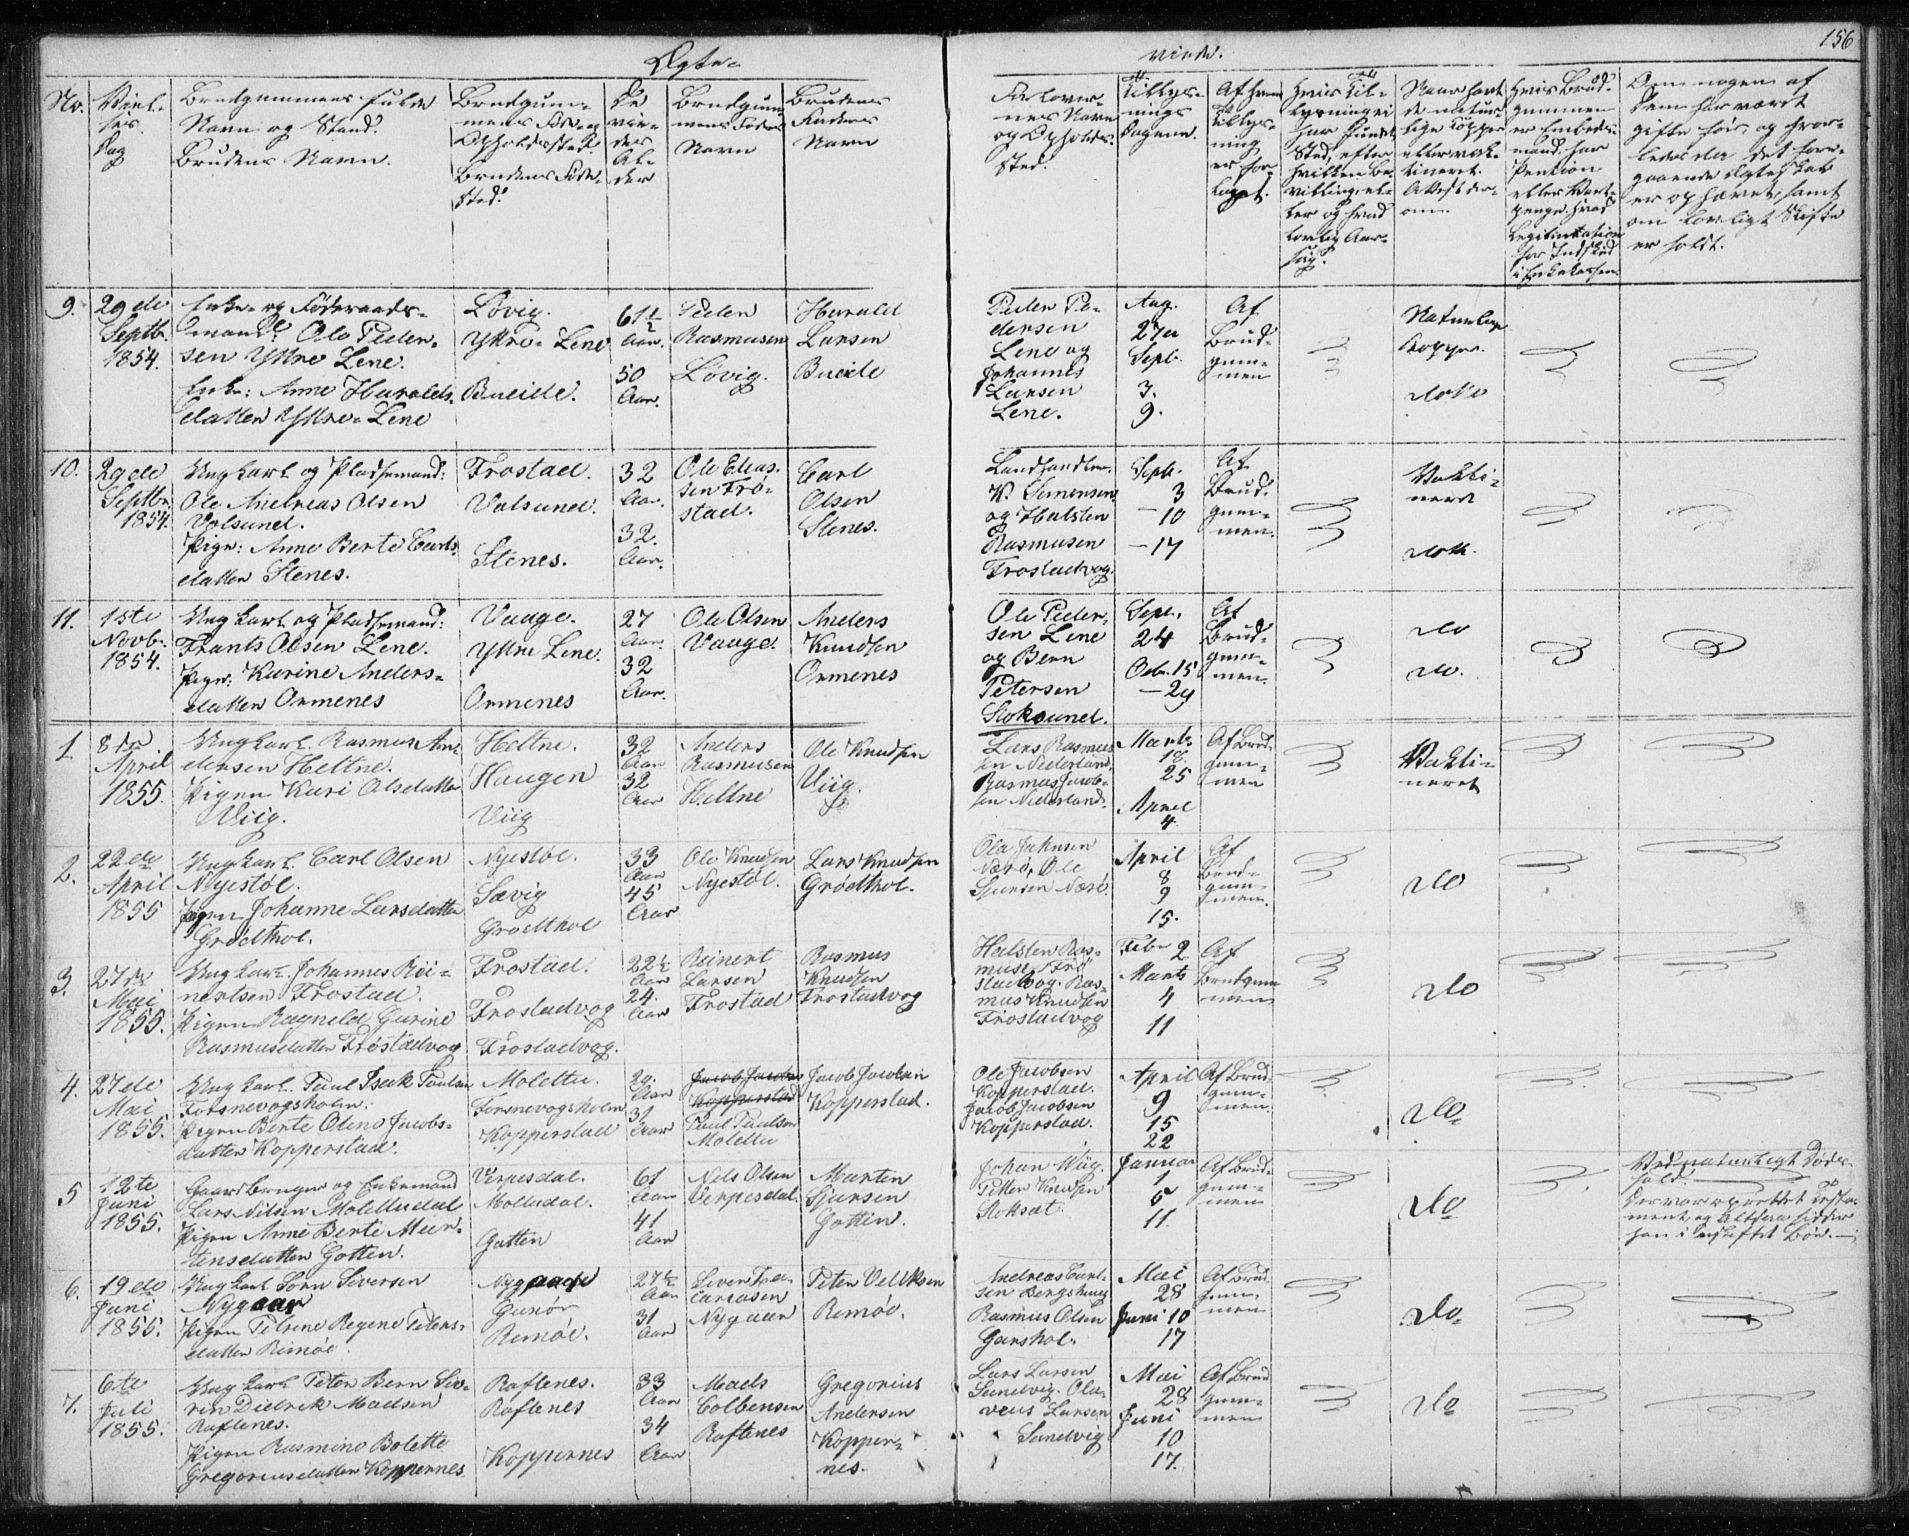 156
Ægte-
viede.
No.
Viel-
ses
Dag
Brudgommens fulde
Navn og Stand.
Brudens Navn.
Brudgom-
mens Føde- og
Opholdssted.
Brudens Føde-
sted.
De
vie-
des
Al-
der
Brudgom-
mens Faders
Navn
Brudens
Faders
Navn
Forlover-
nes Navn
og Opholds-
sted.
Tillys-
nings
Dagene.
Af hvem
Tillys-
ning
er for-
langt.
Naar havt
de natur-
lige Kopper
eller vak-
cineret.
Attest der-
om.
Om nogen af
dem har været
gifte før, og hvor-
ledes da det fore-
gaaende Ægteskab
er ophævet, samt
om lovligt Skifte
er holdt.
9.
29de
Septb.
1854.
Enke- og Føderaads-
mand: Ole Peder-
sen Yttre Lene.
Enke: Anne Haralds-
datter Yttre-Lene
Løvig.
Yttre-Lene
Bueide.
61½
Aar.
50
Aar.
Peder
Rasmusen
Løvig.
Harald
Larsen
Bueide
Peder Pe-
dersen
Lene og
Johannes
Larsen
Lene.
Aug.
27de
Sept.
3.
9.
Af
Brud-
gom-
men
Naturlige
Kopper.
dito
10.
29de
Septbr.
1854.
Ungkarl og Pladsemand:
Ole Andreas Olsen
Valsund.
Pige: Anne Berte Carls-
datter Stenes.
Frostad.
Valsund.
Stenes.
32
Aar.
32.
Aar.
Ole Elias-
sen Frø-
stad.
Carl
Olsen
Stenes.
Landhandler
K. Simensen
og Halsten
Rasmusen
Frostadvog.
Sept.
3
— 10
— 17
Af
Brud-
gom-
men.
Vakci-
neret
dito.
11.
15te
Novb.
1854.
Ungkarl og Pladsemand:
Frants Olsen Lene.
Pige: Karine Anders-
datter Ormenes
Vaage.
Yttre Lene.
Ormenes
27
Aar.
32
Aar.
Ole Olsen
Vaage.
Anders
Knudsen
Ormenes
Ole Peder-
sen Lene
og Bern
Petersen
Stoksund.
Sept.
24
Octr. 15
— 29
Af
Brud-
gom-
men.
do
do.
1.
8de
April
1855.
Ungkarl. Rasmus An-
dersen Heltne.
Pigen Kari Olsdatter
Viig.
Heltne.
Haugen
Viig
32
Aar
32
Aar
Anders
Rasmusen
Heltne
Ole Knudsen
Viig.
Lars Rasmus-
sen Nederland,
Rasmus Jacob-
sen Nederland.
Marts
18
25
April
4
Af Brud-
gom-
men
Vakci-
neret
2.
22de
April
1855
Ungkarl. Carl Olsen
Nyestøl.
Pigen Johanne Larsdatter
Grødthol.
Nyestøl.
Sævig
Grødthol
33
Aar
45
Aar
Ole Knudsen
Nyestøl.
Lars Knudsen
Grødthol.
Ole Johnsen
Nærø, Ole
Sjursen Nærø.
April
8
9
15.
Af
Brud-
gom-
men.
do
3.
27de
Mai
1855.
Ungkarl. Johannes Rei-
nertsen Frostad.
Pigen Ragneld Gurine
Rasmusdatter Frostadvog
Frostad.
Frostadvog
Frostadvog.
22½
Aar
24.
Aar
Reinert
Larsen
Frostad
Rasmus
Knudsen
Frostadvog
Halsten Ras-
musen Frø-
stadvog. Ras-
mus Knudsen
Frostadvog
Febr 2
Marts
4
11
Af
Brudgom-
men
do
4.
27de
Mai
1855.
Ungkarl. Paul Isak Paulsen
Torsnevogsholm.
Pigen Berte Oline Jacobs-
datter Kopperstad.
Moltu.
Torsnevogsholm
Kopperstad
29.
Aar
31
Aar
Jacob Jacobsen
Kopperstad
Paul Paulsen
Moltu
Jacob Jacobsen
Kopperstad.
Ole Jacobsen
Kopperstad.
Jacob Jacobsen
Kopperstad.
April
9
15
22
Af Brud-
gom-
men
do
5
12te
Juni
1855.
Gaardbruger og Enkemand
Lars Nilsen Moltudal
Pigen Anne Berte Mar-
tensdatter Gotten.
Verpesdal.
Moltudal.
Gotten
61
Aar
41
Aar
Nils Olsen
Verpesdal
Martin
Sjursen
Gotten.
Johan Wiig.
Petter Knudsen
Stoksæt.
Januar
1
6
11.
Af Brud-
gom-
men
do
Ved naturligt Døds-
fald.
Der var oprettet Testa-
ment, og altsaa sidder
han i uskiftet Bo.
6.
19de
Juni
1855.
Ungkarl Sørn Siversen
Nygaar
Pigen Petrine Regine Peters-
datter Remøe.
Nygaard
Gurør
Remøe.
27½
Aar
31
Aar
Siver Za-
cariasen
Nygaar
Peter Velksen
Remøe.
Andreas Carl-
sen Bergshaug
Rasmus Olsen
Garshol.
Mai
28
Juni 10
17
Af Brud-
gom-
men
do
7.
6te
Juli
1855.
Ungkarl Peter Bern Siv-
rin Didrik Madsen
Raftenes.
Pigen Rasmine Bolette
Gregoriusdatter Koppernes
Raftenes.
Raftenes
Koppernes
33
Aar
34
Aar
Mads
Colbensen
Raftenes
Gregorius
Andersen
Kopper-
nes.
Lars Larsen
Sandvig. Ola-
veus Larsen
Sandvig
Mai
28
Juni
10
17.
Af Brud-
gom-
men
do